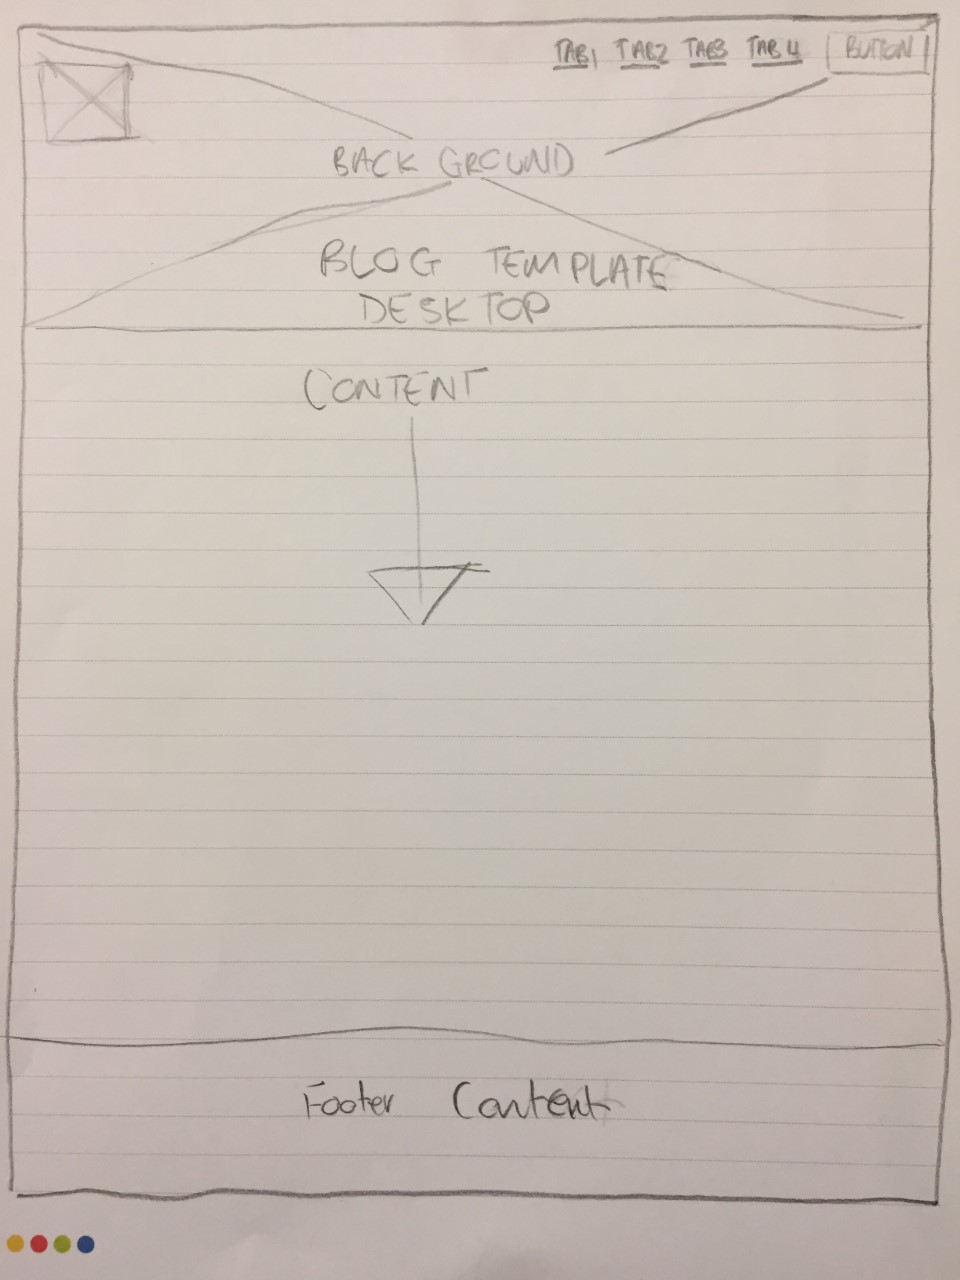 TAB1 TAB2 TAB3 TAB4 BUTTON
BACK GROUND
BLOG TEMPLATE
DESKTOP
CONTENT
Footer Content